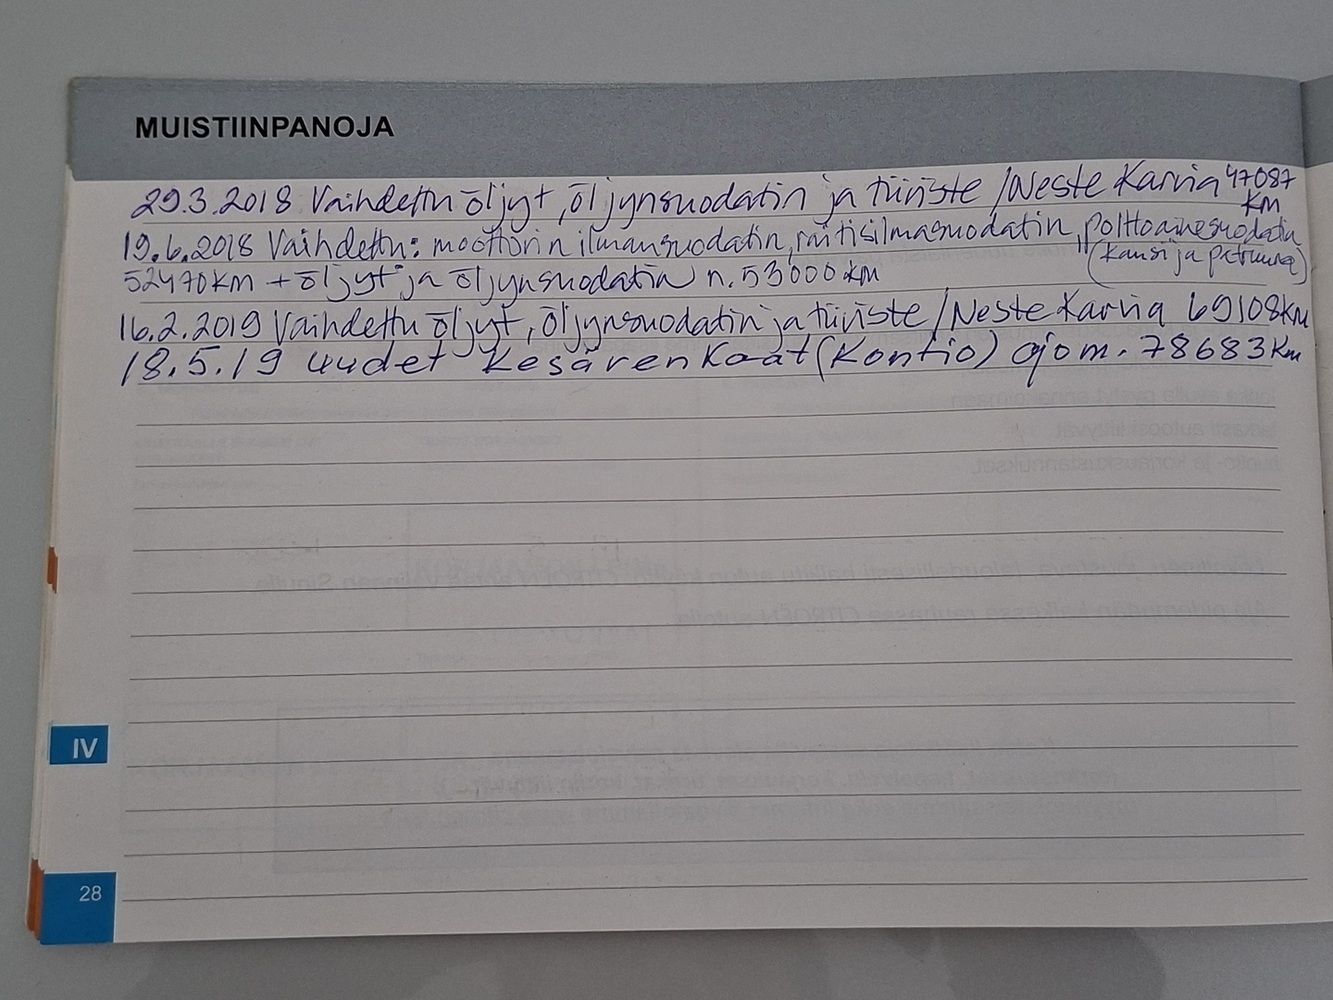 MUISTIINPANOJA
29.3.2018 Vaihdettu öljyt, öljynsuodatin ja tiiviste / Neste Karvia 47087 km
19.6.2018 Vaihdettu: moottorin ilmansuodatin, raitisilmasuodatin, polttoainesuodatin (kansi ja patruuna)
52470km + öljyt ja öljynsuodatin n. 53000 km
16.2.2019 Vaihdettu öljyt, öljynsuodatin ja tiiviste / Neste Karvia 69108km
18.5.19 uudet kesärenkaat (Kontio) ajom. 78683 km
IV
28